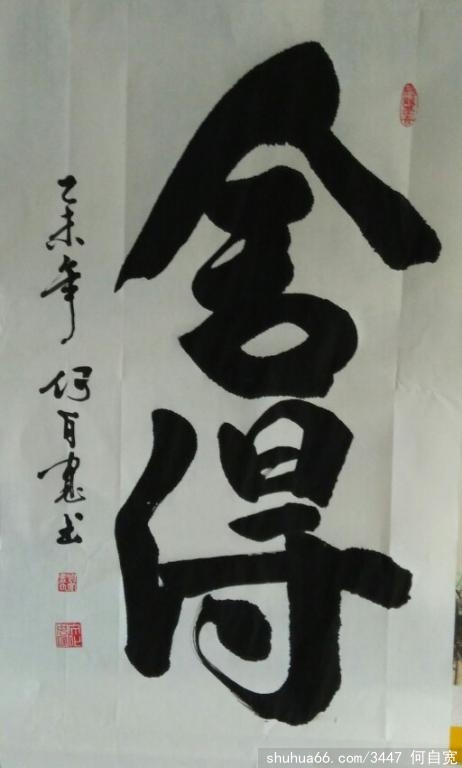 舍得
乙未年
何自宽书
shuhua66.com/3447 何自宽